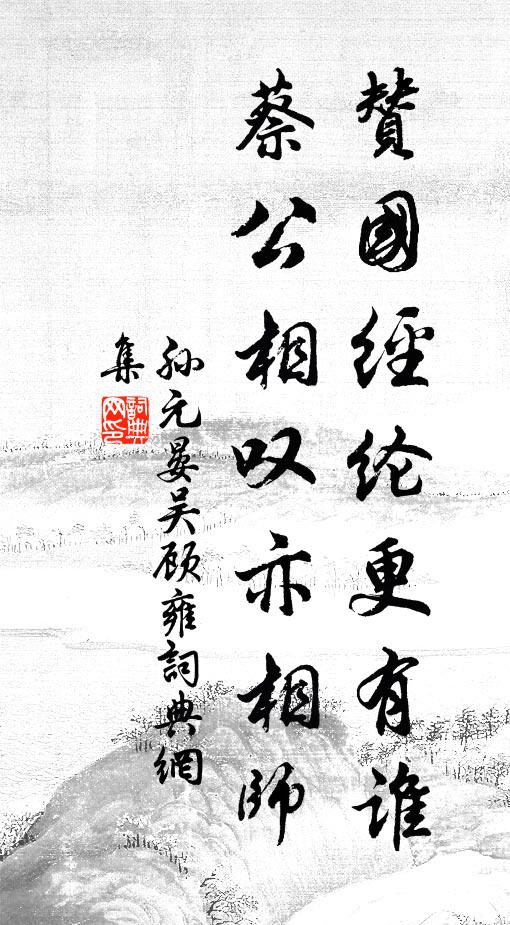 賛國經纶更有谁
蔡公相叹亦相師
孙元晏吴顾雍詞典網
集
詞典网印